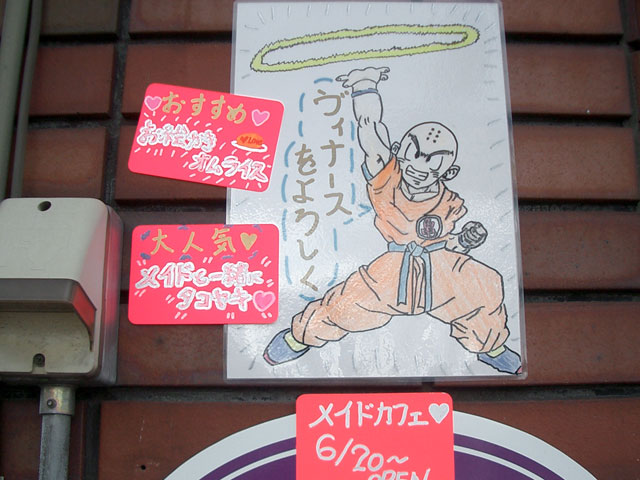 おすすめ
お絵かき
オムライス
大人気
メイドと一緒に
タコヤキ
ヴィナース
をよろしく
メイドカフェ
6/20〜
OPEN